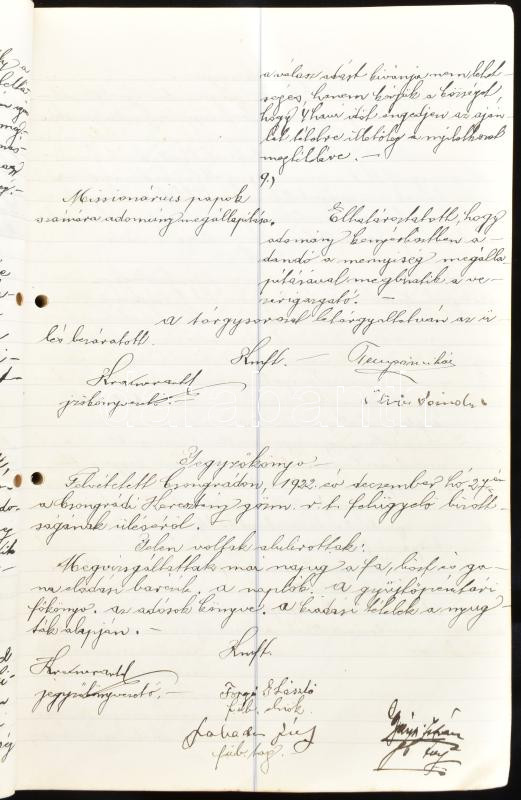 a válasz adást kivánja nem lehet-
séges, hanem kérjék a községet
hogy 4 havi időt engedjen az aján-
lat tételre illetőleg a nyilatkozat
megtételére. —
9.)
Missionárius papok
számára adomány megállapitása.
Elhatároztatott, hogy
adomány kenyérlisztben a-
dandó a mennyiség megálla-
pitásával megbizatik a ve-
zérigazgató. —
A tárgysorozat letárgyaltatván az ü-
lés bezáratott.
Kmft. —
jzőkönyvvezető.
Jegyzőkönyv
Felvétetett Csongrádon, 1922 év december hó 27-én
a Csongrádi Keresztény gőzm. r. t. felügyelő bizott-
ságának üléséről.
Jelen voltak alulirottak:
Megvizsgáltattak mai napig a fa, liszt és ga-
na eladási bárcák, a naplók, a gyűjtőpénztári
főkönyv, az adósok könyve, a kiadási tételek a nyug-
ták alapján. —
Kmft.
jegyzőkönyvvezető. —
Forgó László
felb. elnök.
felb. tag.